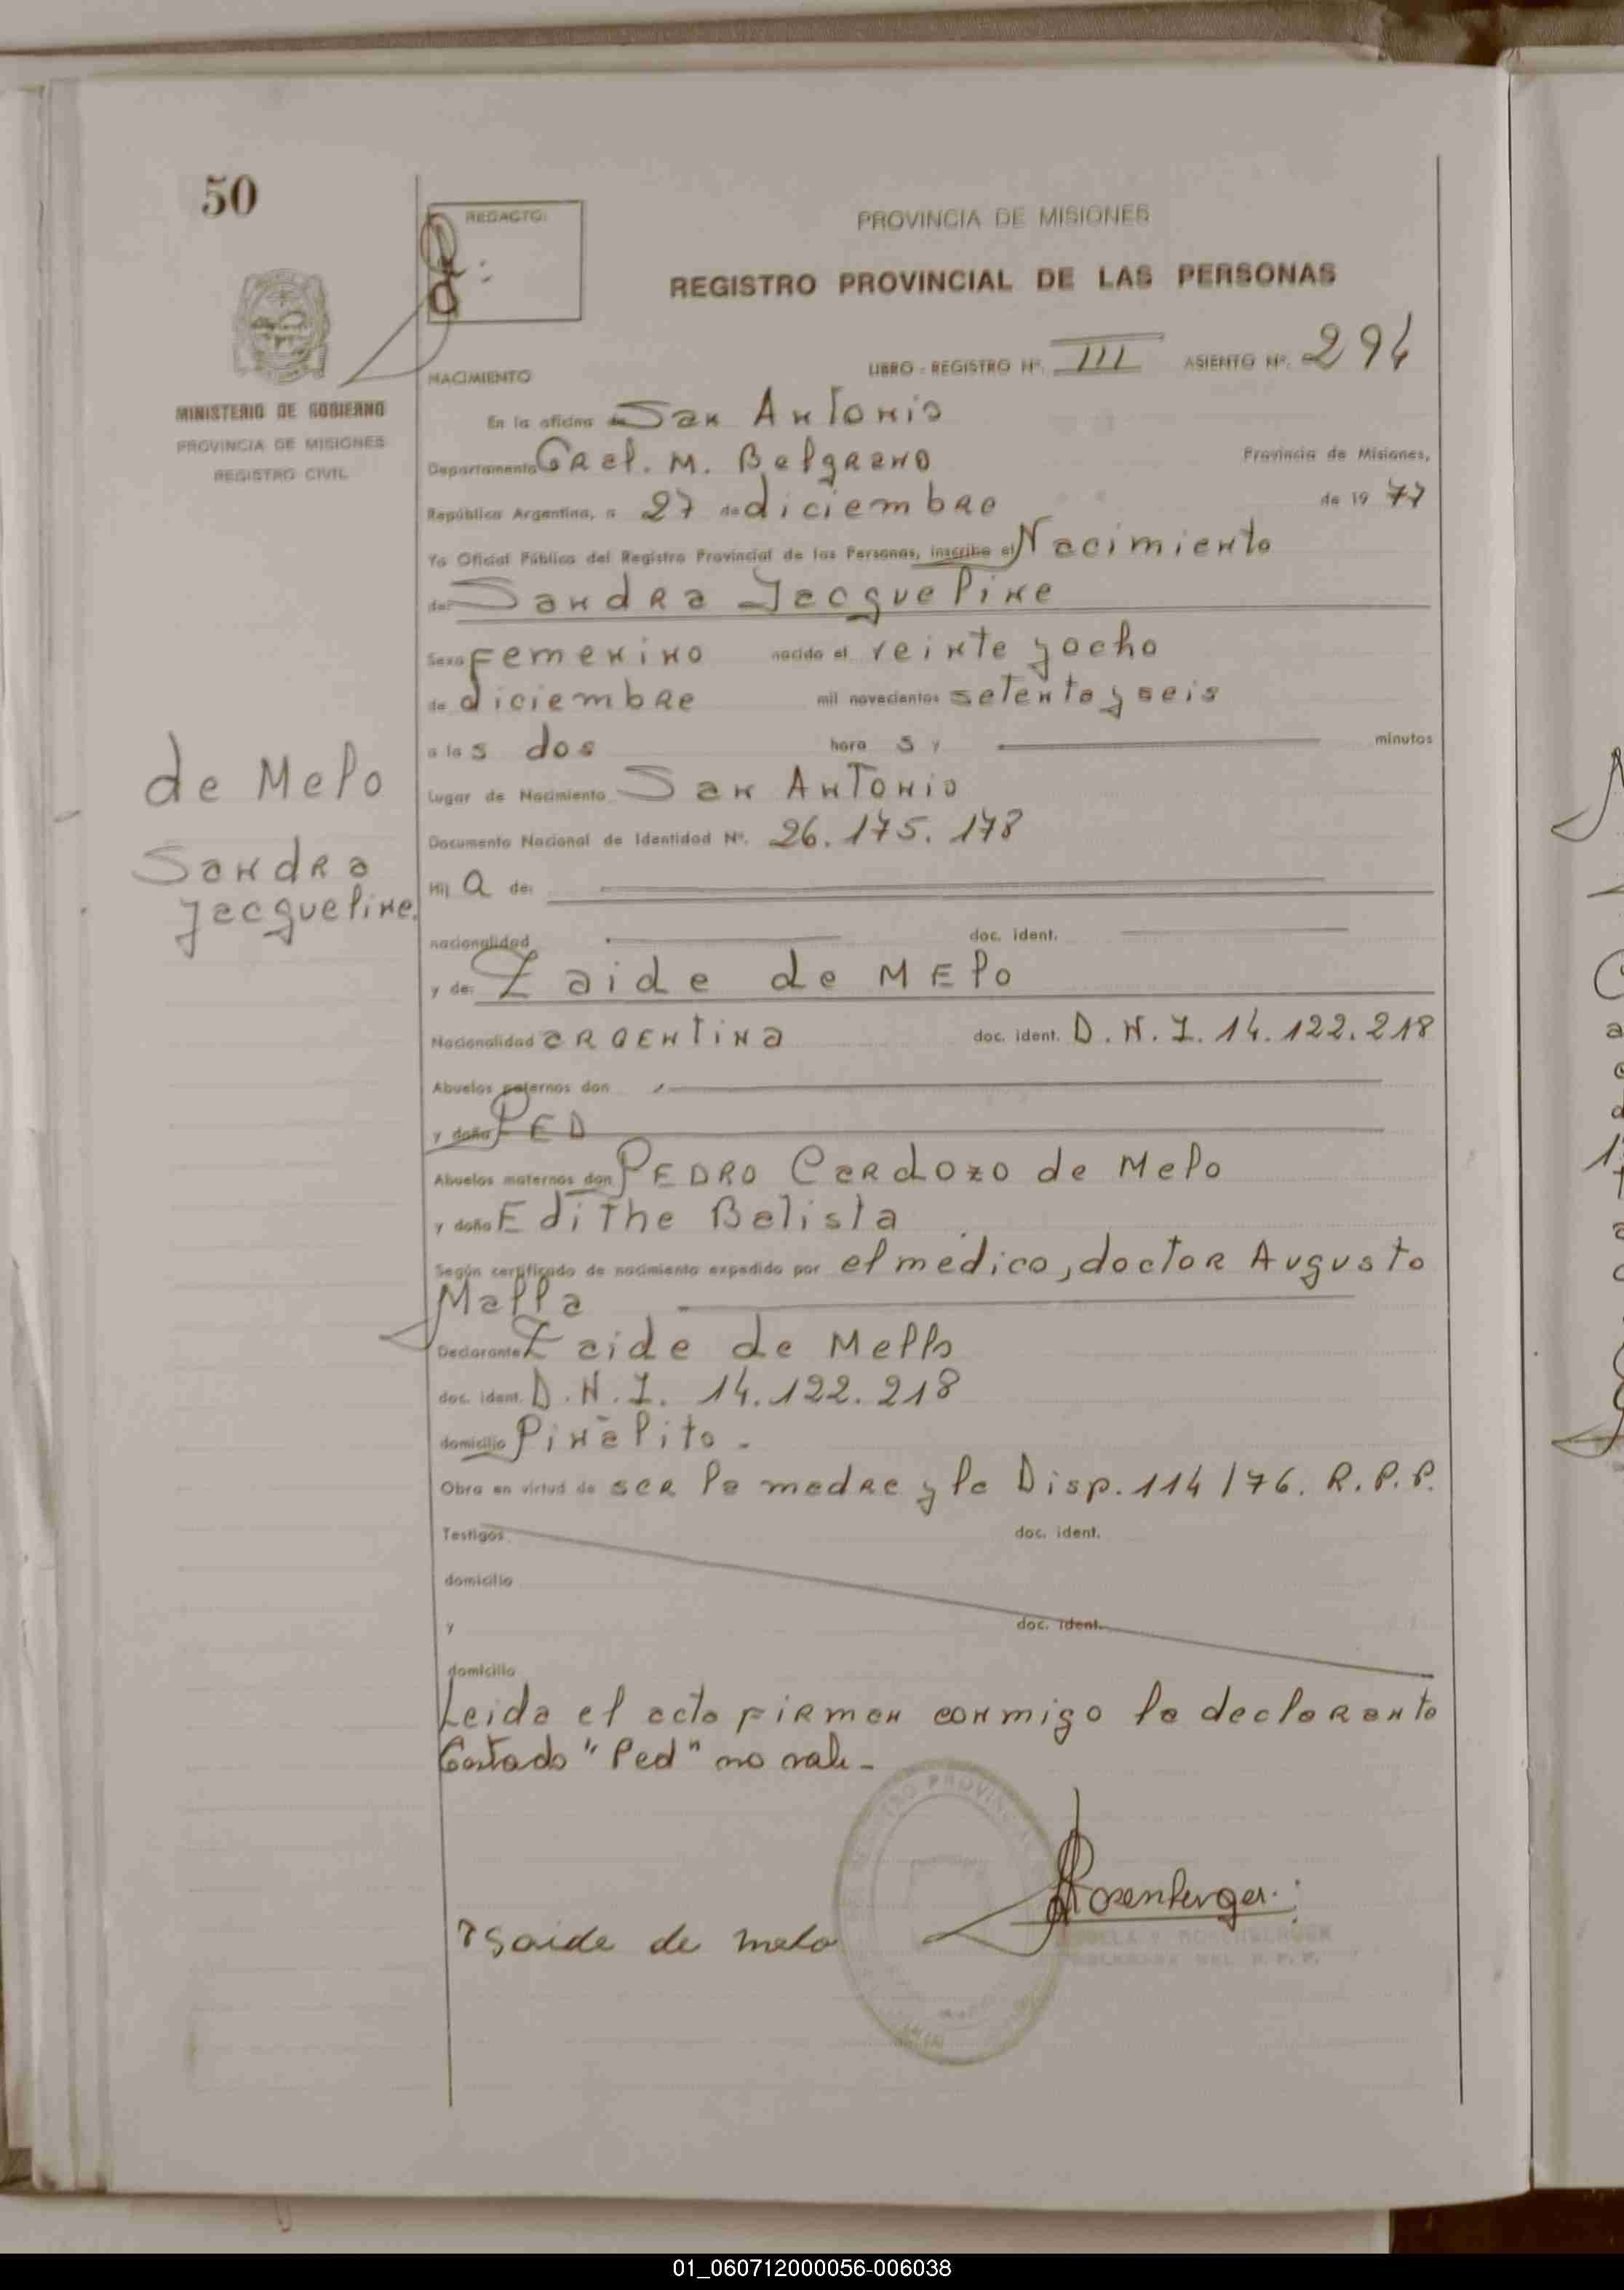 50
REDACTO:
PROVINCIA DE MISIONES
REGISTRO PROVINCIAL DE LAS PERSONAS
LIBRO - REGISTRO Nº. III ASIENTO Nº. 294
NACIMIENTO
MINISTERIO DE GOBIERNO
PROVINCIA DE MISIONES
REGISTRO CIVIL
En la oficina de San Antonio
Departamento Gral. M. Belgrano Provincia de Misiones,
República Argentina, a 27 de diciembre de 1977
Yo Oficial Público del Registro Provincial de las Personas, inscribo el Nacimiento
de: Sandra Jacqueline
Sexo Femenino nacido el veinte y ocho
de diciembre mil novecientos setenta y seis
a las dos horas y minutos
de Melo
Sandra
Jacqueline.
Lugar de Nacimiento San Antonio
Documento Nacional de Identidad Nº. 26.175.178
Hija de:
nacionalidad doc. ident.
y de: Zaide de MElo
Nacionalidad argentina doc. ident. D.N.I. 14.122.218
Abuelos paternos don
y doña PED
Abuelos maternos don PEDRO Cardozo de Melo
y doña Edithe Belista
Según certificado de nacimiento expedido por el médico, doctor Augusto
Malla
Declarante Zaide de Mello
doc. ident. D.N.I. 14.122.218
domicilio Piñalito.
Obra en virtud de ser la madre y la Disp. 114/76. R.P.P.
Testigos doc. ident.
domicilio
y doc. ident.
domicilio
Leida el acta firman conmigo la declarante
Testado "Ped" no vale-
Rosenberger
Saide de melo
01_060712000056-006038